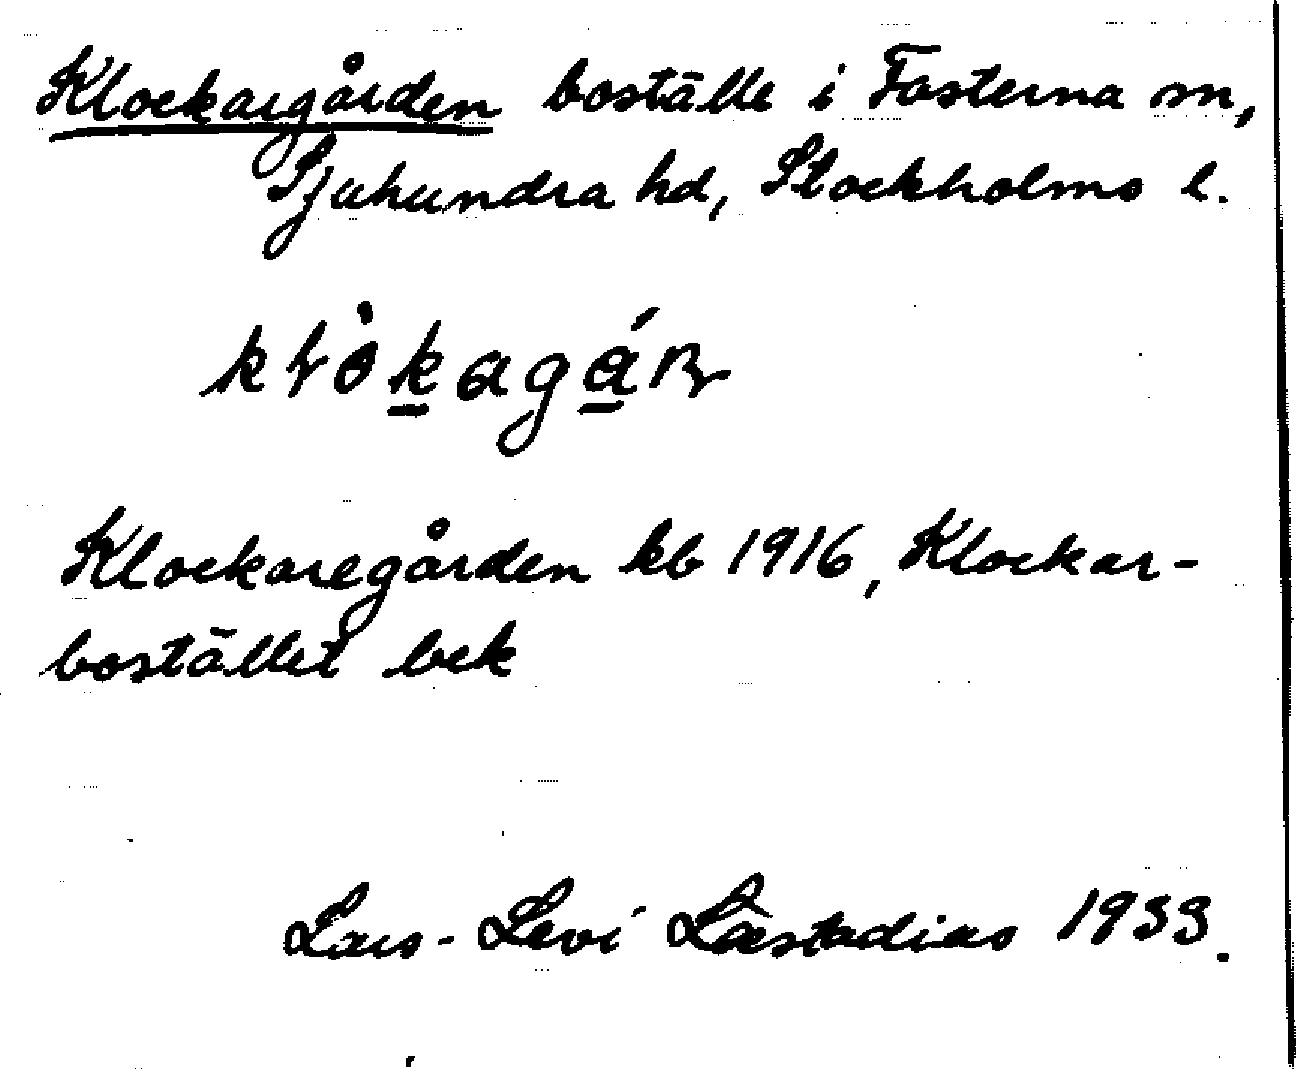 Klockargården boställe i Fasterna sn,
Sjuhundra hd, Stockholms l.
Klockaregården kb 1916, Klockar-
bostället bek
Lars-Levi Læstadius 1933.